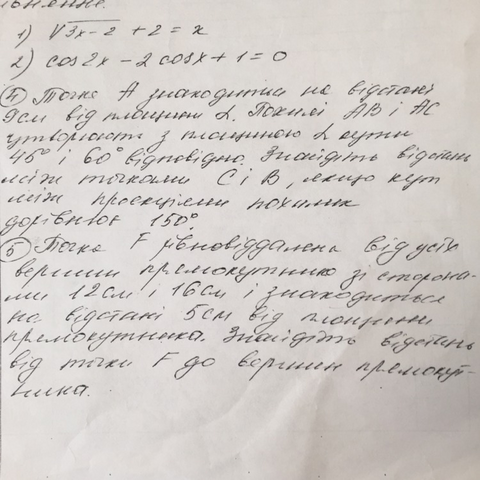 івнення.
1) √3x-2 + 2 = x
2) cos2x - 2cosx + 1 = 0
4 Точка А знаходиться на відстані
см від площини α. Похилі АВ і АС
утворюють з площиною α кути
45° і 60° відповідно. Знайдіть відстань
між точками С і В, якщо кут
між проекціями похилих
дорівнює 150°.
5 Точка F рівновіддалена від усіх
вершин прямокутника зі сторона-
ми 12см і 16см і знаходиться
на відстані 5см від площини
прямокутника. Знайдіть відстань
від точки F до вершин прямокут-
ника.